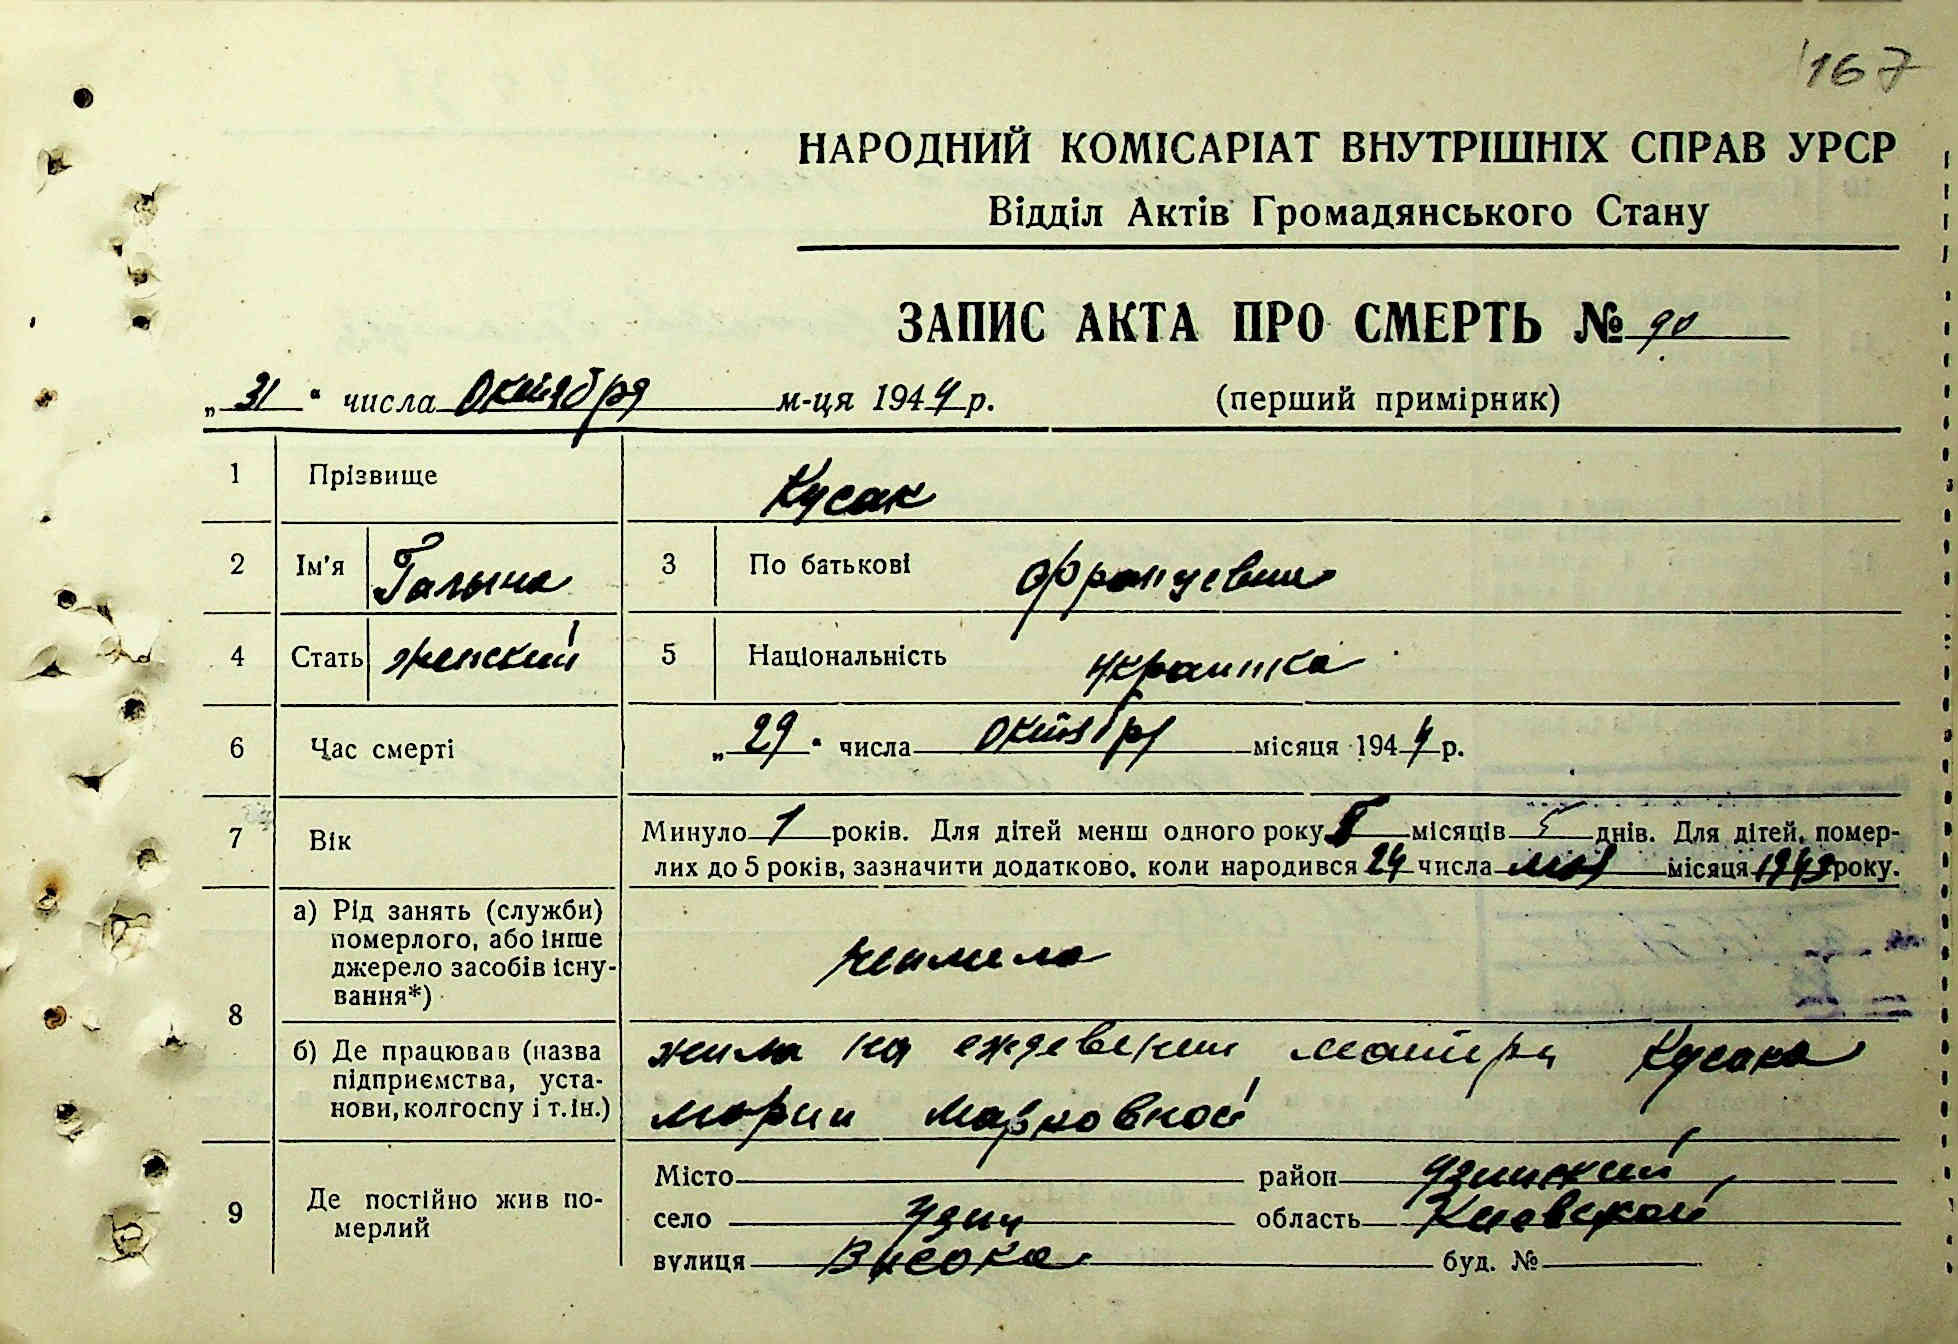 167
НАРОДНИЙ КОМІСАРІАТ ВНУТРІШНІХ СПРАВ УРСР
Відділ Актів Громадянського Стану
ЗАПИС АКТА ПРО СМЕРТЬ № 90
„31“ числа Октября м-ця 1944 р. (перший примірник)
1 Прізвище Кусак
2 Ім'я Галына 3 По батькові Францевна
4 Стать женский 5 Національність украинка
6 Час смерті „29“ числа Октября місяця 1944 р.
7 Вік Минуло 1 років. Для дітей менш одного року 5 місяців 5 днів. Для дітей, помер-
лих до 5 років, зазначити додатково, коли народився 24 числа мая місяця 1943 року.
8 а) Рід занять (служби)
померлого, або інше
джерело засобів існу-
вання*)
б) Де працював (назва
підприємства, уста-
нови, колгоспу і т.ін.) жила на иждевении матери Кусака
марии Марковной
9 Де постійно жив по-
мерлий
Місто район Узинский
село Узин область Киевской
вулиця Висока буд. №